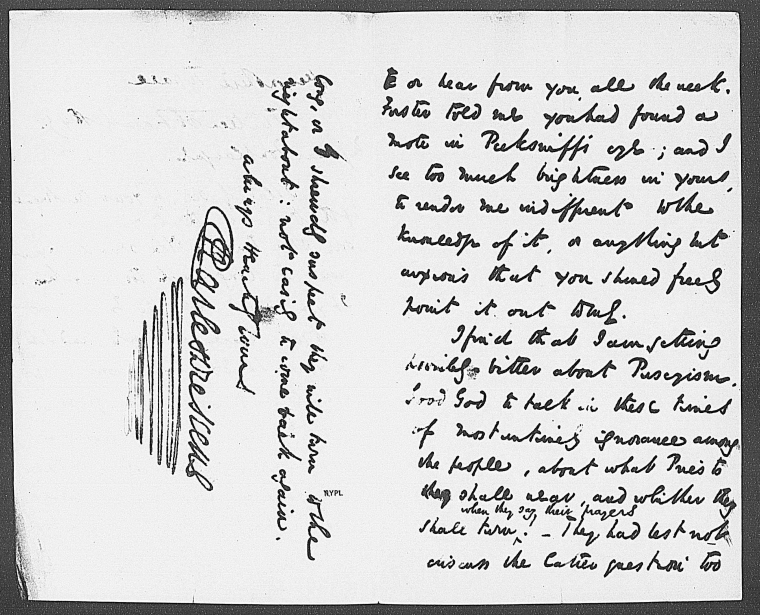 & or hear from you, all the week.
Forster told me you had found a
mote in Pecksniff's eye; and I
see too much brightness in yours,
to render me indifferent to the
knowledge of it, or anything but
anxious that you should freely
point it out to me.
I find that I am getting
horribly bitter about Puseyism.
Good God to talk in these times
of most untimely ignorance among
the people, about what Priests
shall wear, and whither they
when they say their prayers
shall turn! – They had best not
discuss the latter question too
long, or I shrewdly suspect they will turn to the
rightabout: not easily to come back again.
always Heartily Yours
Charles Dickens
NYPL